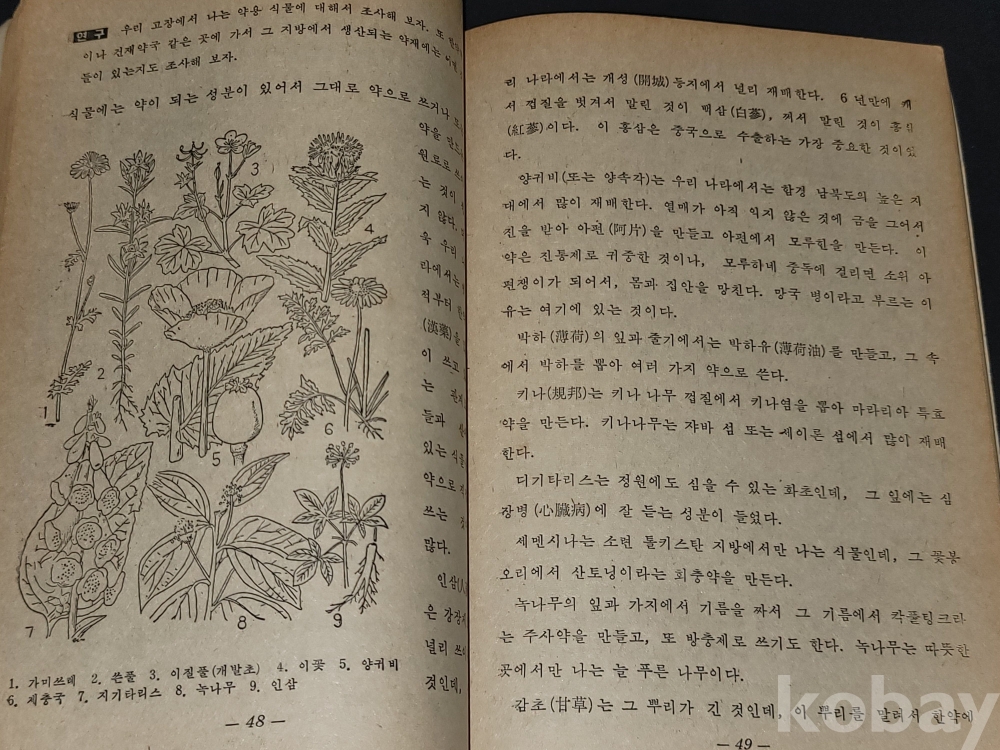 연구 우리 고장에서 나는 약용 식물에 대해서 조사해 보자. 또
이나 건재약국 같은 곳에 가서 그 지방에서 생산되는 약재에는
들이 있는지도 조사해 보자.
식물에는 약이 되는 성분이 있어서 그대로 약으로 쓰거나
약을 만드
원료로 쓰
는 것이
지 않다.
욱 우리
라에서는
적부터
(漢藥)을
이 쓰고
는
들과
있는 식물
약으로
쓰는
많다.
인삼(人
은 강장
널리 쓰
것인데,
1
2
3
4
5
6
7
8
9
1. 가미쓰레 2. 쓴풀 3. 이질풀(개발초) 4. 이꽃 5. 양귀비
6. 제충국 7. 지기타리스 8. 녹나무 9. 인삼
— 48 —
리 나라에서는 개성(開城) 등지에서 널리 재배한다. 6년만에 캐
서 껍질을 벗겨서 말린 것이 백삼(白蔘), 쪄서 말린 것이 홍삼
(紅蔘)이다. 이 홍삼은 중국으로 수출하는 가장 중요한 것이었
다.
양귀비(또는 양속각)는 우리 나라에서는 함경 남북도의 높은 지
대에서 많이 재배한다. 열매가 아직 익지 않은 것에 금을 그어서
진을 받아 아편(阿片)을 만들고 아편에서 모루힌을 만든다. 이
약은 진통제로 귀중한 것이나, 모루히네 중독에 걸리면 소위 아
편쟁이가 되어서, 몸과 집안을 망친다. 망국 병이라고 부르는 이
유는 여기에 있는 것이다.
박하(薄荷)의 잎과 줄기에서는 박하유(薄荷油)를 만들고, 그 속
에서 박하를 뽑아 여러 가지 약으로 쓴다.
키나(規邦)는 키나 나무 껍질에서 키나염을 뽑아 마라리아 특효
약을 만든다. 키나나무는 쟈바 섬 또는 세이론 섬에서 많이 재배
한다.
디기타리스는 정원에도 심을 수 있는 화초인데, 그 잎에는 심
장병(心臟病)에 잘 듣는 성분이 들었다.
세멘시나는 소련 톨키스탄 지방에서만 나는 식물인데, 그 꽃봉
오리에서 산토닝이라는 회충약을 만든다.
녹나무의 잎과 가지에서 기름을 짜서 그 기름에서 칵풀팅크라
는 주사약을 만들고, 또 방충제로 쓰기도 한다. 녹나무는 따뜻한
곳에서만 나는 늘 푸른 나무이다.
감초(甘草)는 그 뿌리가 긴 것인데, 이 뿌리를 말려서 한약에
— 49 —
kobay